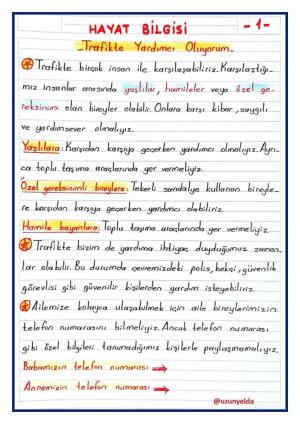 HAYAT BİLGİSİ
-1-
Trafikte Yardımcı Oluyorum
Trafikte birçok insan ile karşılaşabiliriz. Karşılaştığı-
mız insanlar arasında yaşlılar, hamileler veya özel ge-
reksinimi olan bireyler olabilir. Onlara karşı kibar, saygılı
ve yardımsever olmalıyız.
Yaşlılara: Karşıdan karşıya geçerken yardımcı olmalıyız. Ayrı-
ca toplu taşıma araçlarında yer vermeliyiz.
Özel gereksinimli bireylere: Tekerli sandalye kullanan bireyle-
re karşıdan karşıya geçerken yardımcı olabiliriz.
Hamile bayanlara: Toplu taşıma araçlarında yer vermeliyiz.
Trafikte bizim de yardıma ihtiyaç duyduğumuz zaman-
lar olabilir. Bu durumda çevremizdeki polis, bekçi, güvenlik
görevlisi gibi güvenilir kişilerden yardım isteyebiliriz.
Ailemize kolayca ulaşabilmek için aile bireylerimizin
telefon numarasını bilmeliyiz. Ancak telefon numarası
gibi özel bilgileri tanımadığımız kişilerle paylaşmamalıyız.
Babamızın telefon numarası
Annemizin telefon numarası
@uzunyelda